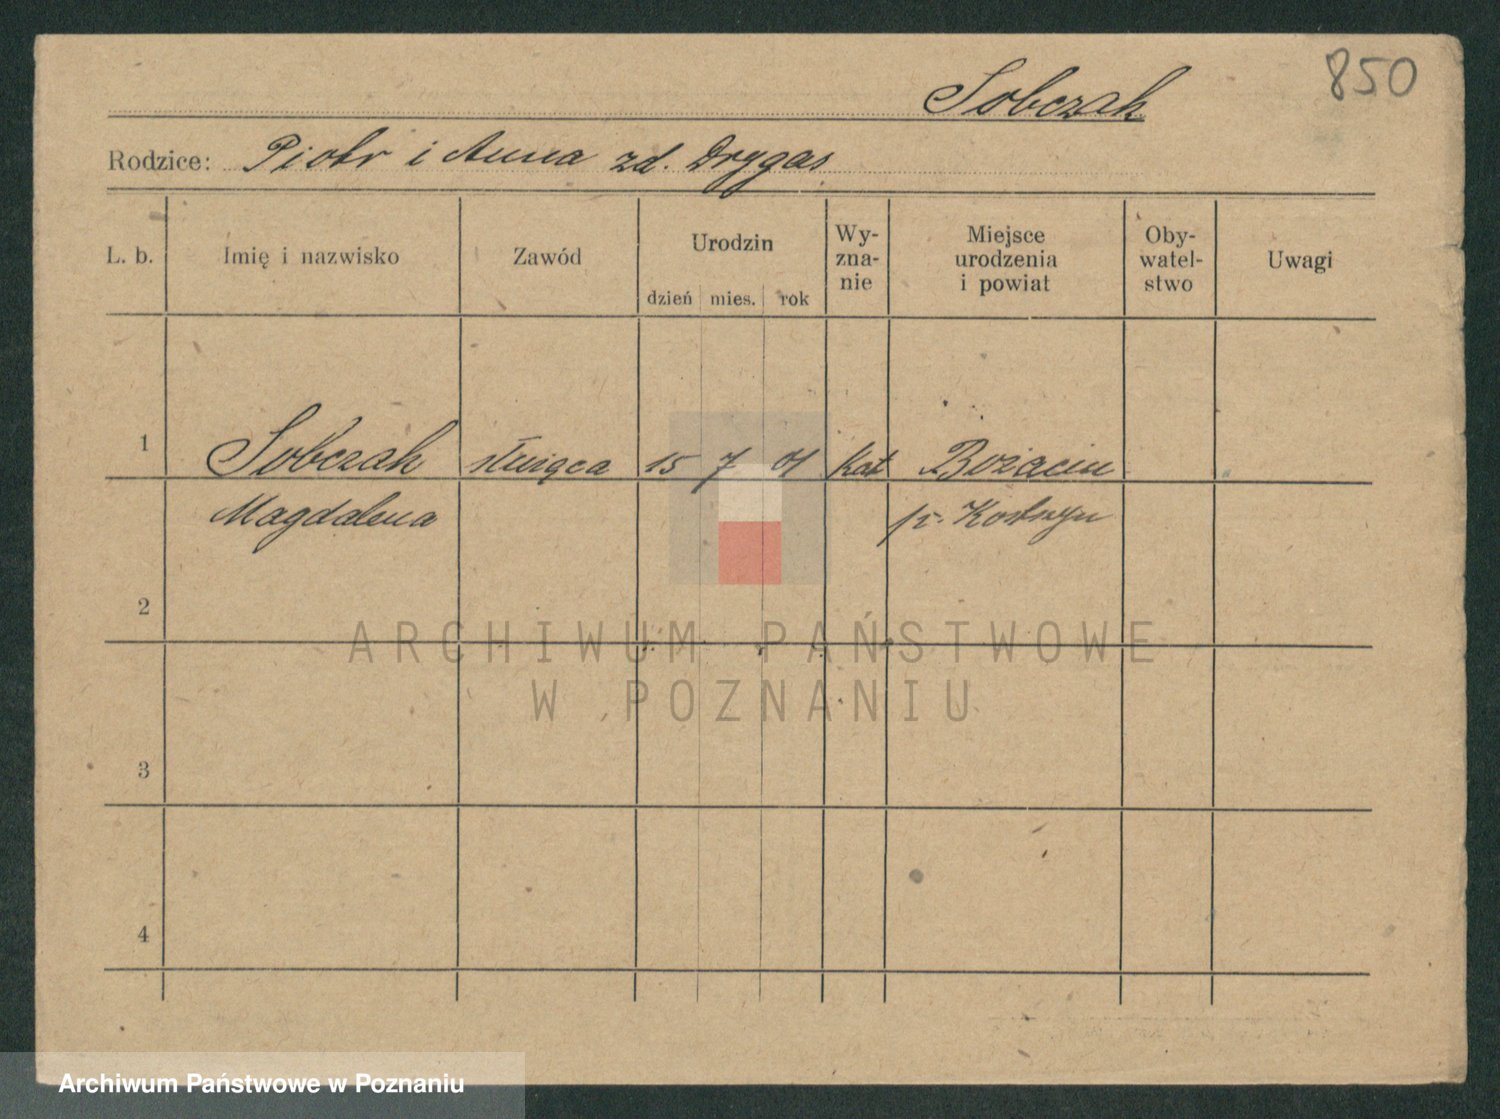 850
Sobczak
Rodzice: Piotr i Anna zd. Drygas
L. b. Imię i nazwisko Zawód Urodzin Wy-zna-nie Miejsce urodzenia i powiat Oby-watel-stwo Uwagi
dzień mies. rok
1 Sobczak służąca 15 7 01 kat Bożacin
Magdalena p. Kostrzyn
2
3
4
ARCHIWUM PAŃSTWOWE
W POZNANIU
Archiwum Państwowe w Poznaniu